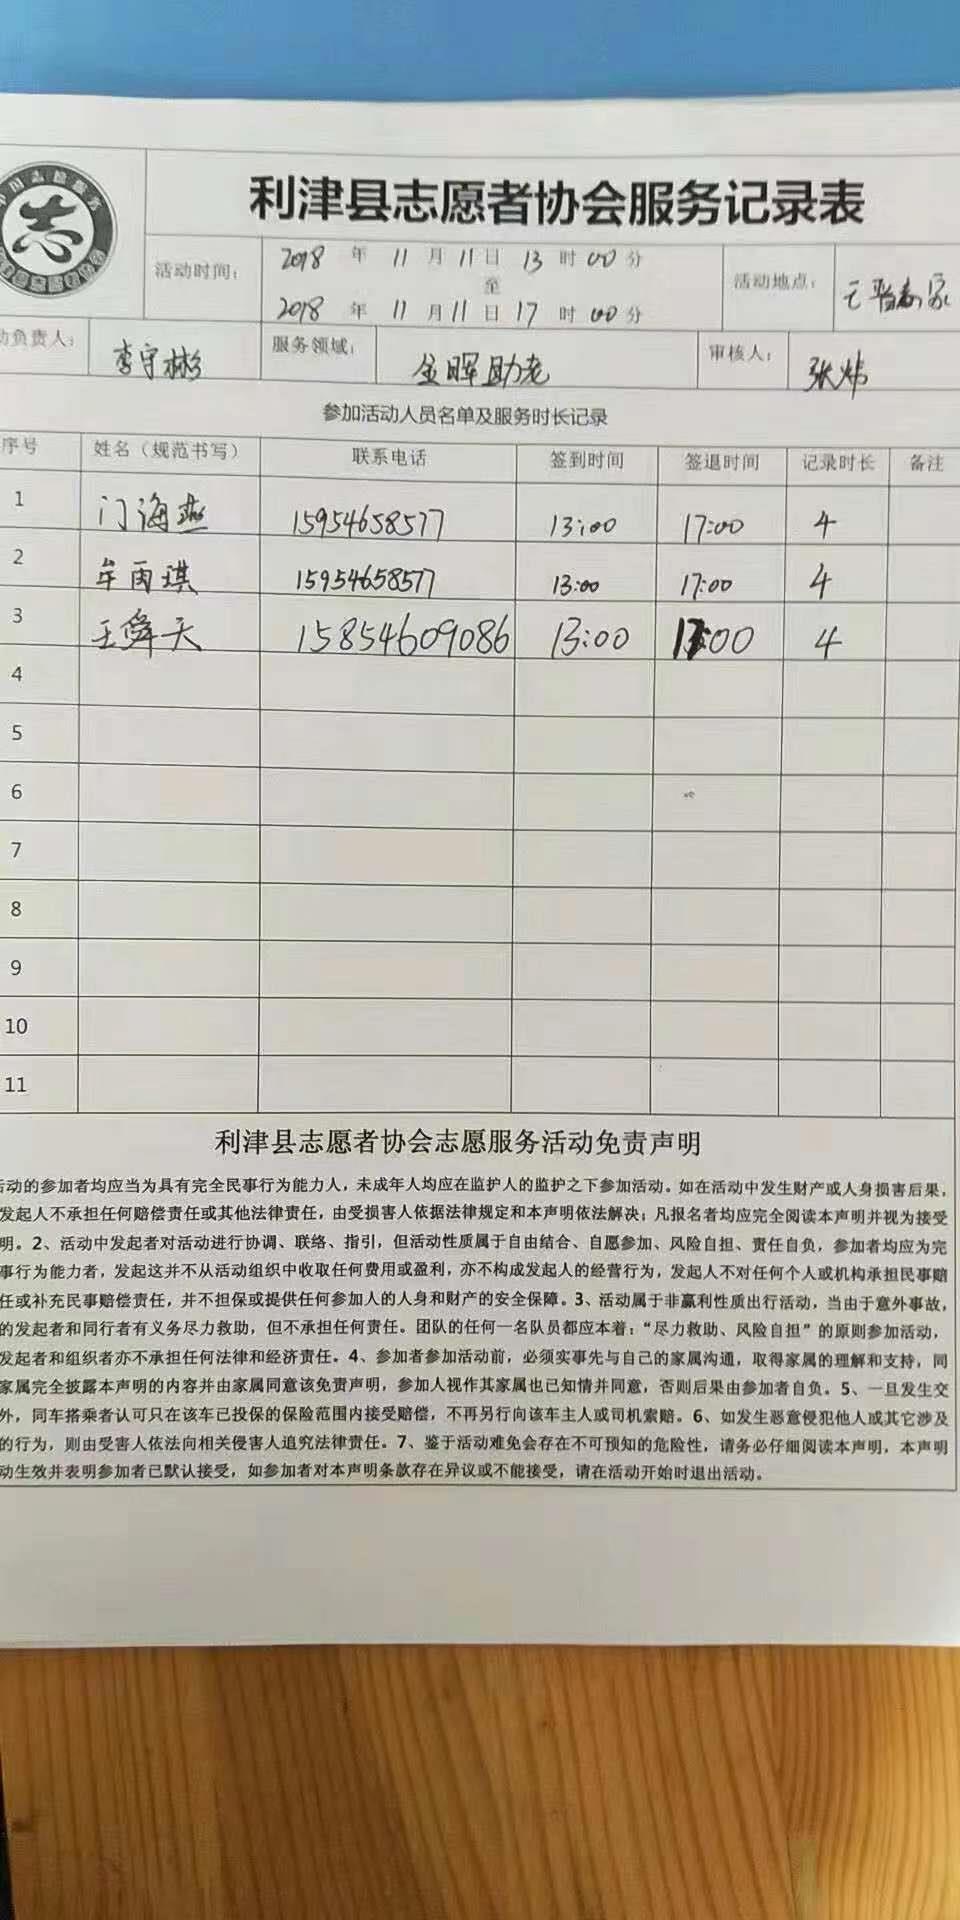 利津县志愿者协会服务记录表
志
活动时间： 2018 年 11 月 11 日 13 时 00 分
至
2018 年 11 月 11 日 17 时 00 分
活动地点：
动负责人： 李守彬 服务领域： 金晖助老 审核人： 张炜
参加活动人员名单及服务时长记录
序号 姓名（规范书写） 联系电话 签到时间 签退时间 记录时长 备注
1 门海燕 15954658577 13:00 17:00 4
2 牟雨琪 15954658577 13:00 17:00 4
3 王舜天 15854609086 13:00 17:00 4
4
5
6
7
8
9
10
11
利津县志愿者协会志愿服务活动免责声明
活动的参加者均应当为具有完全民事行为能力人，未成年人均应在监护人的监护之下参加活动。如在活动中发生财产或人身损害后果，
发起人不承担任何赔偿责任或其他法律责任，由受损害人依据法律规定和本声明依法解决；凡报名者均应完全阅读本声明并视为接受
明。2、活动中发起者对活动进行协调、联络、指引，但活动性质属于自由结合、自愿参加、风险自担、责任自负，参加者均应为完
事行为能力者，发起这并不从活动组织中收取任何费用或盈利，亦不构成发起人的经营行为，发起人不对任何个人或机构承担民事赔
任或补充民事赔偿责任，并不担保或提供任何参加人的人身和财产的安全保障。3、活动属于非赢利性质出行活动，当由于意外事故，
的发起者和同行者有义务尽力救助，但不承担任何责任。团队的任何一名队员都应本着：“尽力救助、风险自担”的原则参加活动，
发起者和组织者亦不承担任何法律和经济责任。4、参加者参加活动前，必须实事先与自己的家属沟通，取得家属的理解和支持，同
家属完全披露本声明的内容并由家属同意该免责声明，参加人视作其家属也已知情并同意，否则后果由参加者自负。5、一旦发生交
外，同车搭乘者认可只在该车已投保的保险范围内接受赔偿，不再另行向该车主人或司机索赔。6、如发生恶意侵犯他人或其它涉及
的行为，则由受害人依法向相关侵害人追究法律责任。7、鉴于活动难免会存在不可预知的危险性，请务必仔细阅读本声明，本声明
动生效并表明参加者已默认接受，如参加者对本声明条款存在异议或不能接受，请在活动开始时退出活动。